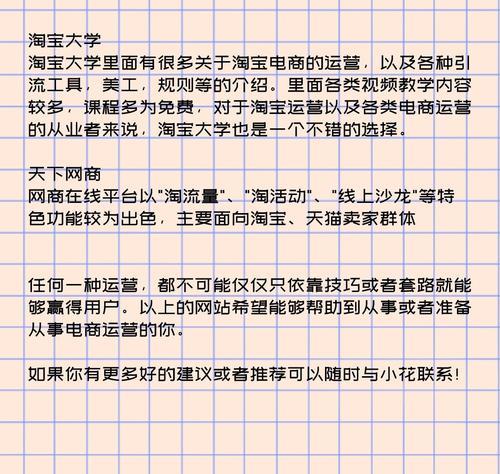 淘宝大学
淘宝大学里面有很多关于淘宝电商的运营，以及各种引
流工具，美工，规则等的介绍。里面各类视频教学内容
较多，课程多为免费，对于淘宝运营以及各类电商运营
的从业者来说，淘宝大学也是一个不错的选择。
天下网商
网商在线平台以"淘流量"、"淘活动"、"线上沙龙"等特
色功能较为出色，主要面向淘宝、天猫卖家群体
任何一种运营，都不可能仅仅只依靠技巧或者套路就能
够赢得用户。以上的网站希望能够帮助到从事或者准备
从事电商运营的你。
如果你有更多好的建议或者推荐可以随时与小花联系!